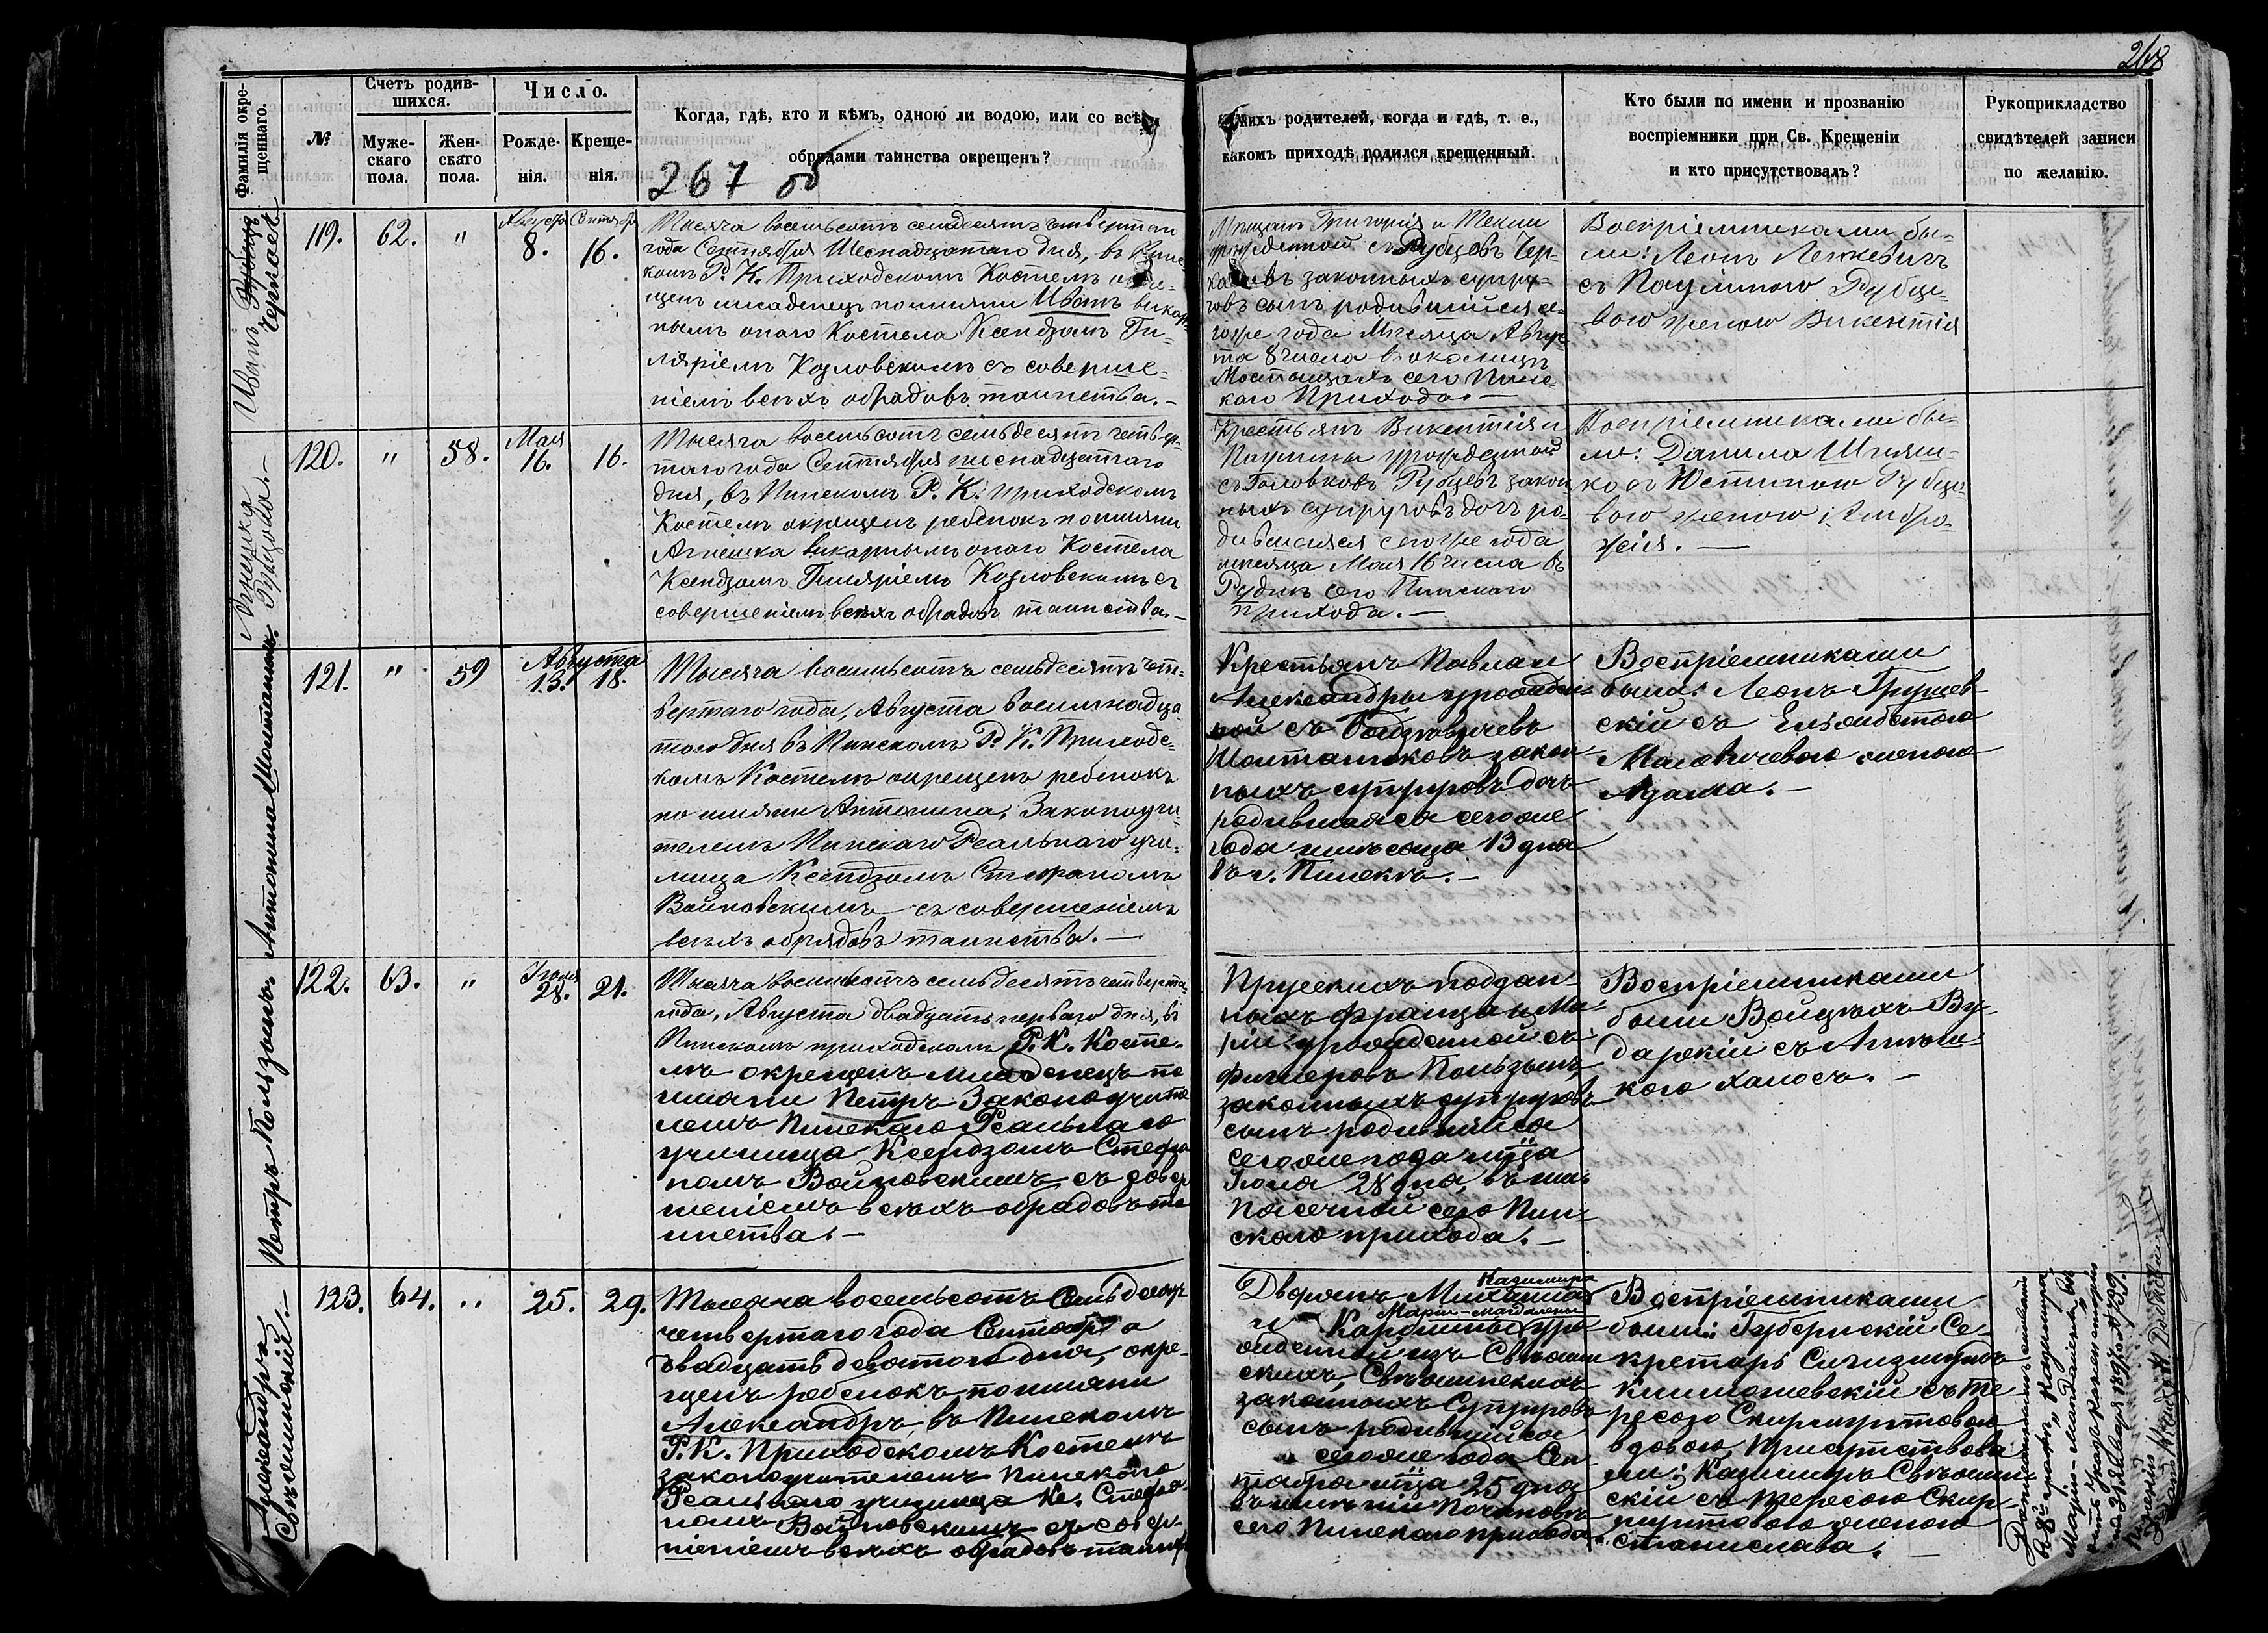 268
Фамилія окре-
щеннаго.
№
Счетъ родив-
шихся.
Муже-
скаго
пола.
Жен-
скаго
пола.
Число.
Рожде-
нія.
Креще-
нія.
Когда, гдѣ, кто и кѣмъ, одною ли водою, или со всѣми
обрядами таинства окрещенъ?
267 об
какихъ родителей, когда и гдѣ, т. е.,
какомъ приходѣ родился крещенный.
Кто были по имени и прозванію
воспріемники при Св. Крещеніи
и кто присутствовалъ?
Рукоприкладство
свидѣтелей записи
по желанію.
Иванъ
Черкасъ
119.
62.
"
Августа
8.
Сентября
16.
Тысяча восемьсотъ семьдесятъ четвертаго
года Сентября Шеснадцатаго дня, въ Пинс-
комъ Р. К. Приходскомъ Костелѣ окре-
щенъ младенецъ по имени Иванъ викар-
нымъ онаго Костела Ксендзомъ Ги-
ляріемъ Козловскимъ съ соверше-
ніемъ всѣхъ обрядовъ таинства.-
Мѣщанъ Григорія и Теклі
урожденной съ Рубцовъ Чер-
касовъ законныхъ супру-
говъ сынъ родившійся се-
гоже года Мѣсяца Авгус-
та 8 числа въ околицѣ
Мостыщахъ сего Пинс-
каго Прихода. —
Воспріемниками бы-
ли: Леонъ Лежевичъ
съ Паулиною Рубце-
вою женою Викентія
Агнешка
Рубцова.-
120.
"
58.
Мая
16.
16.
Тысяча восемьсотъ семьдесятъ четвер-
таго года Сентября шеснадцатаго
дня, въ Пинскомъ Р. К. приходскомъ
Костелѣ окрещенъ ребенокъ по имени
Агнешка викарнымъ онаго Костела
Ксендзомъ Гиляріемъ Козловскимъ съ
совершеніемъ всѣхъ обрядовъ таинства.-
Крестьянъ Викентія и
Паулины урожденной
съ Головковъ Рубцовъ закон
ныхъ супруговъ дочь ро-
дившаяся сего же года
мѣсяца Мая 16 числа въ
Рудкѣ сего Пинскаго
прихода. —
Воспріемниками бы-
ли: Данила
ко съ Юстиною Рубце-
вою женою Амбро-
жія. —
Антонина Шолтанюкъ.
121.
"
59
Августа
13. 18.
Тысяча восемьсотъ семьдесятъ чет-
вертаго года, Августа восемнадца-
таго дня въ Пинскомъ Р. К. Приходс-
комъ Костелѣ окрещенъ ребенокъ
по имени Антонина, Законоучи-
телемъ Пинскаго Реальнаго учи-
лища Ксендзомъ Стефаномъ
Войновскимъ съ совершеніемъ
всѣхъ обрядовъ таинства. —
Крестьянъ Павла и
Александры урожден-
ной съ
закон
ныхъ супруговъ дочь
родившаяся сегоже
года мѣсяца 13 дня
въ г. Пинскѣ. -
Воспріемниками
были: Леонъ
скій съ Елизабетою
женою
Адама. -
Петръ Пользынъ
122.
63.
"
Іюля
28.
21.
Тысяча восемьсотъ семьдесятъ четверта-
года, Августа двадцать перваго дня, въ
Пинскомъ приходскомъ Р. К. Косте-
лѣ окрещенъ младенецъ по
имени Петръ Законоучите
лемъ Пинскаго Реальнаго
училища Ксендзомъ Стефа
номъ Войновскимъ съ совер
шеніемъ всѣхъ обрядовъ та
инства. —
Прусскихъ поддан-
ныхъ Франца и Ма-
ріи урожденной съ
Фишеровъ Пользынъ
законныхъ супруговъ
сынъ родившійся
сегоже года мца
Іюля 28 дня, въ
сего Пин-
скаго прихода. —
Воспріемниками
были Войцѣхъ Бу-
дарскій съ
кою -
Александръ
Свѣжинскій.-
123.
64.
"
25.
29.
Тысяча восемьсотъ Семьдесятъ
четвертаго года Сентября
двадцать девятаго дня, окре-
щенъ ребенокъ по имени
Александръ, въ Пинскомъ
Р. К. Приходскомъ Костелѣ
законоучителемъ Пинскаго
Реальнаго училища Кс. Стефа-
номъ Войновскимъ съ совер-
шеніемъ всѣхъ обрядовъ таинств
Казимира
Дворянъ Михаила
Маріи-Магдалены
и Каролины уро
жденной изъ Свѣжин
скихъ, Свѣжинскихъ
законныхъ Супруговъ
сынъ родившійся
сегоже года Сен
тября мца 25 дня
въ имѣніи
сего Пинскаго прихода.
Воспріемниками
были: Губернскій Се-
кретарь Сигизмундъ
съ Те-
ресою Скирмунтовою
вдовою, Присутствова
ли: Казимиръ Свѣжин
скій съ Тересою Скир-
мунтовою женою
Станислава. —
въ 8й графѣ "Казимира
Марія-Магдалена"